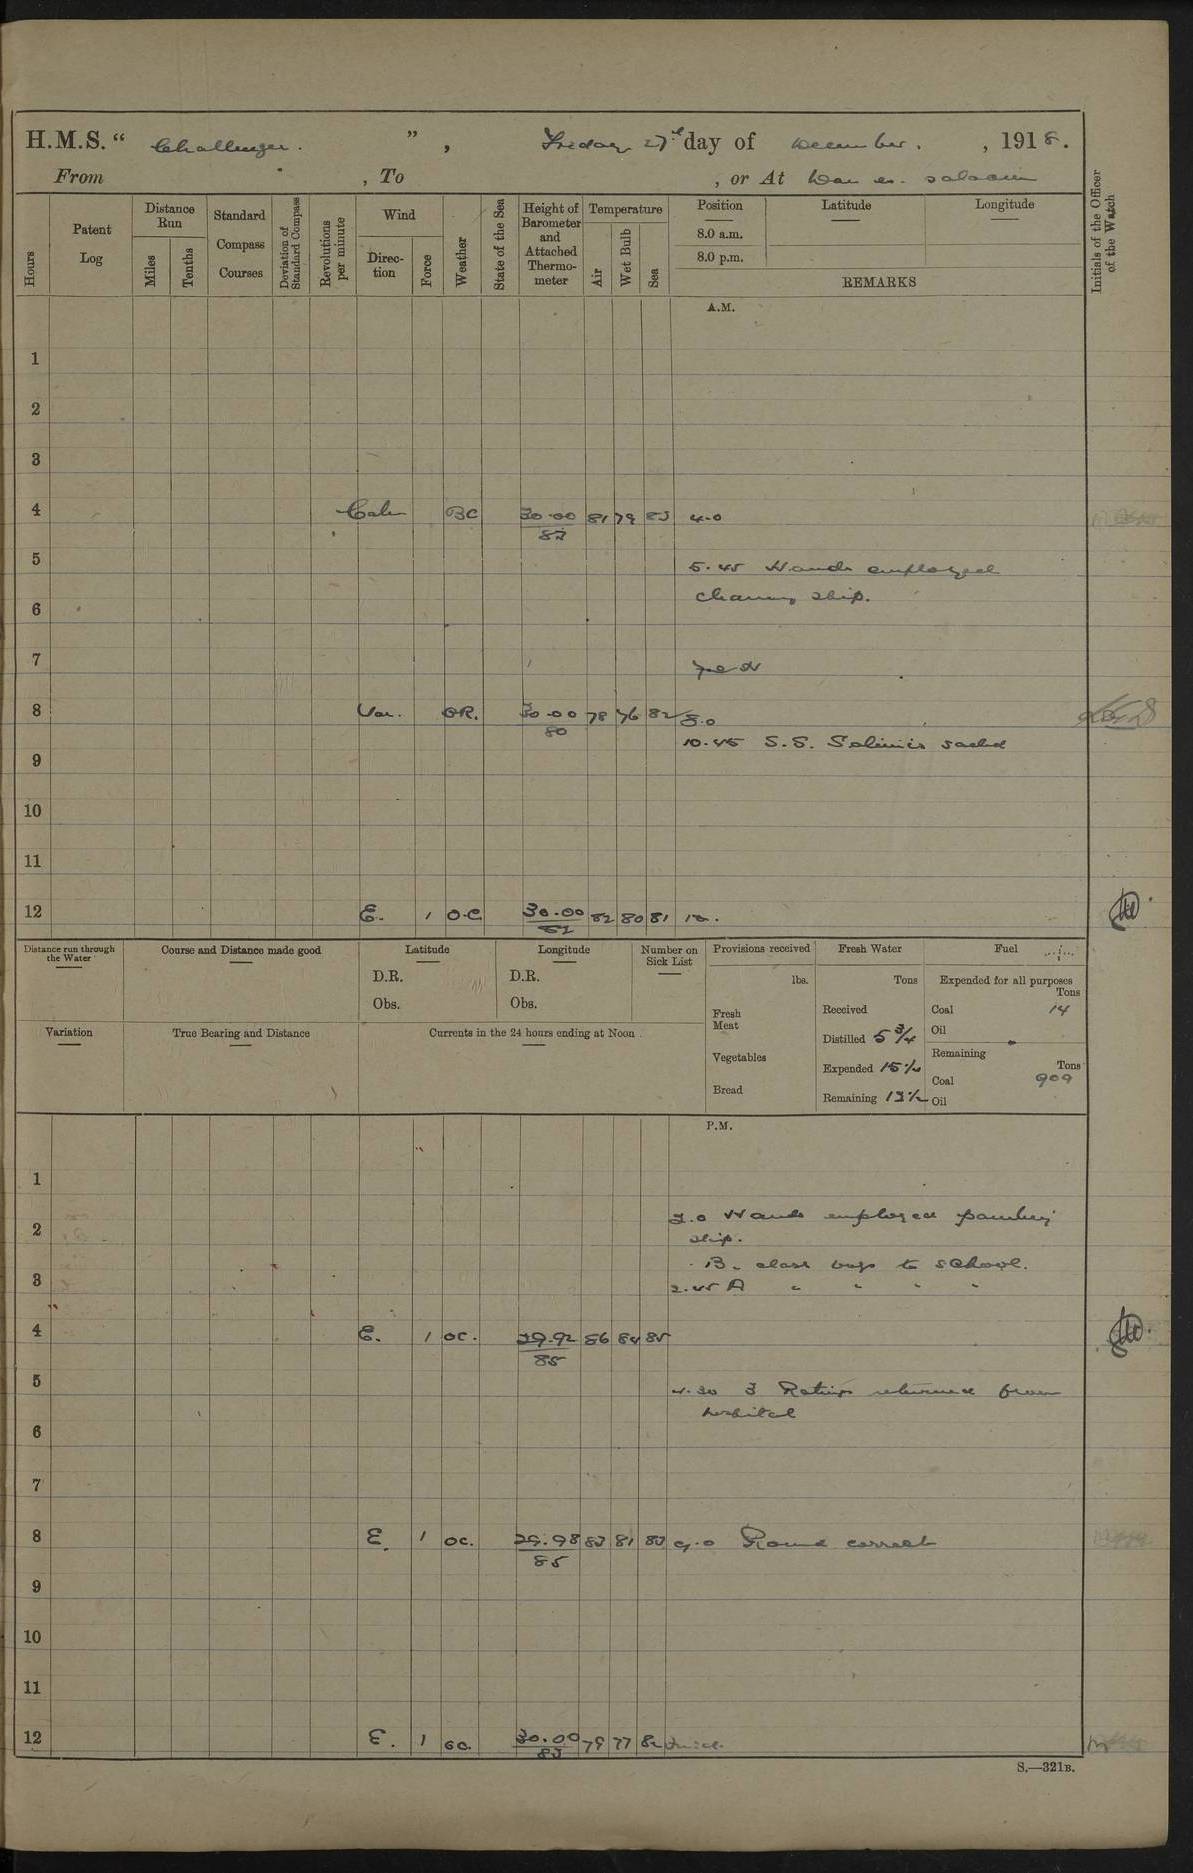 H.M.S. “ Challenger. ” , Friday 27th day of December. , 1918.
From , To , or At Dar es. salaam
Hours
Patent Log
Distance Run
Miles
Tenths
Standard Compass Courses
Deviation of Standard Compass
Revolutions per minute
Wind
Direction
Force
Weather
State of the Sea
Height of Barometer and Attached Thermometer
Temperature
Air
Wet Bulb
Sea
Position
8.0 a.m.
8.0 p.m.
Latitude
Longitude
REMARKS
Initials of the Officer of the Watch
A.M.
1
2
3
4 Calm BC 30.00 81 79 83 4.0
5
5.45 Hands employed
6
cleaning ship.
7
8 Var. OR. 30.00 78 76 82 8.0
80
10.45 S.S. Salamis sailed
9
10
11
12 E. 1 O.C 30.00 82 80 81 12.
82
Distance run through the Water
Course and Distance made good
Latitude
D.R.
Obs.
Longitude
D.R.
Obs.
Number on Sick List
Provisions received
lbs.
Fresh Meat
Vegetables
Bread
Fresh Water
Tons
Received
Distilled 5 3/4
Expended 15 1/2
Remaining 13 1/2
Fuel
Expended for all purposes
Tons
Coal 14
Oil
Remaining
Tons
Coal 909
Oil
Variation
True Bearing and Distance
Currents in the 24 hours ending at Noon
P.M.
1
2
Hands employed painting
ship.
B. class boys to school.
3
2.45 A " " " "
4 E. 1 OC. 29.92 86 84 85
85
5
4.30 3 Ratings returned from
hospital
6
7
8 E. 1 OC. 29.98 83 81 83 9.0 Rounds correct
85
9
10
11
12 E. 1 30.00 79 77 82
83
S.—321B.